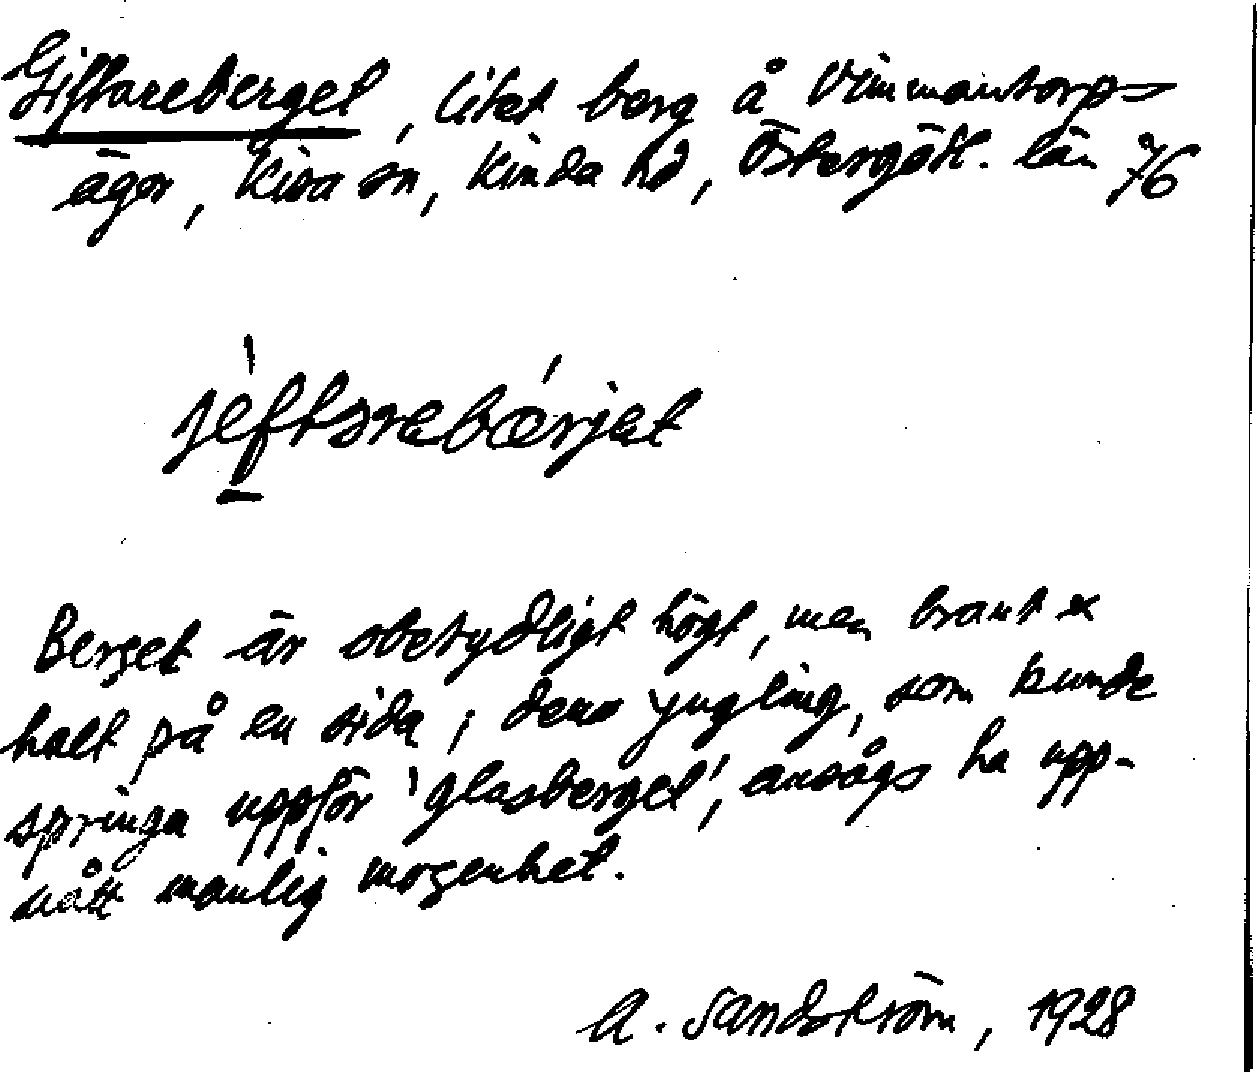 Giftarebergel, litet berg å Vimmantorps
ägor, Kisa sn, Kinda hd, Östergötl. län 76
jèftarebǽrjet
Berget är obetydligt högt, men brant &
halt på en sida; dena yngling, som kunde
springa uppför 'glasberget', ansågs ha upp-
nått manlig mogenhet.
A. Sandström, 1928